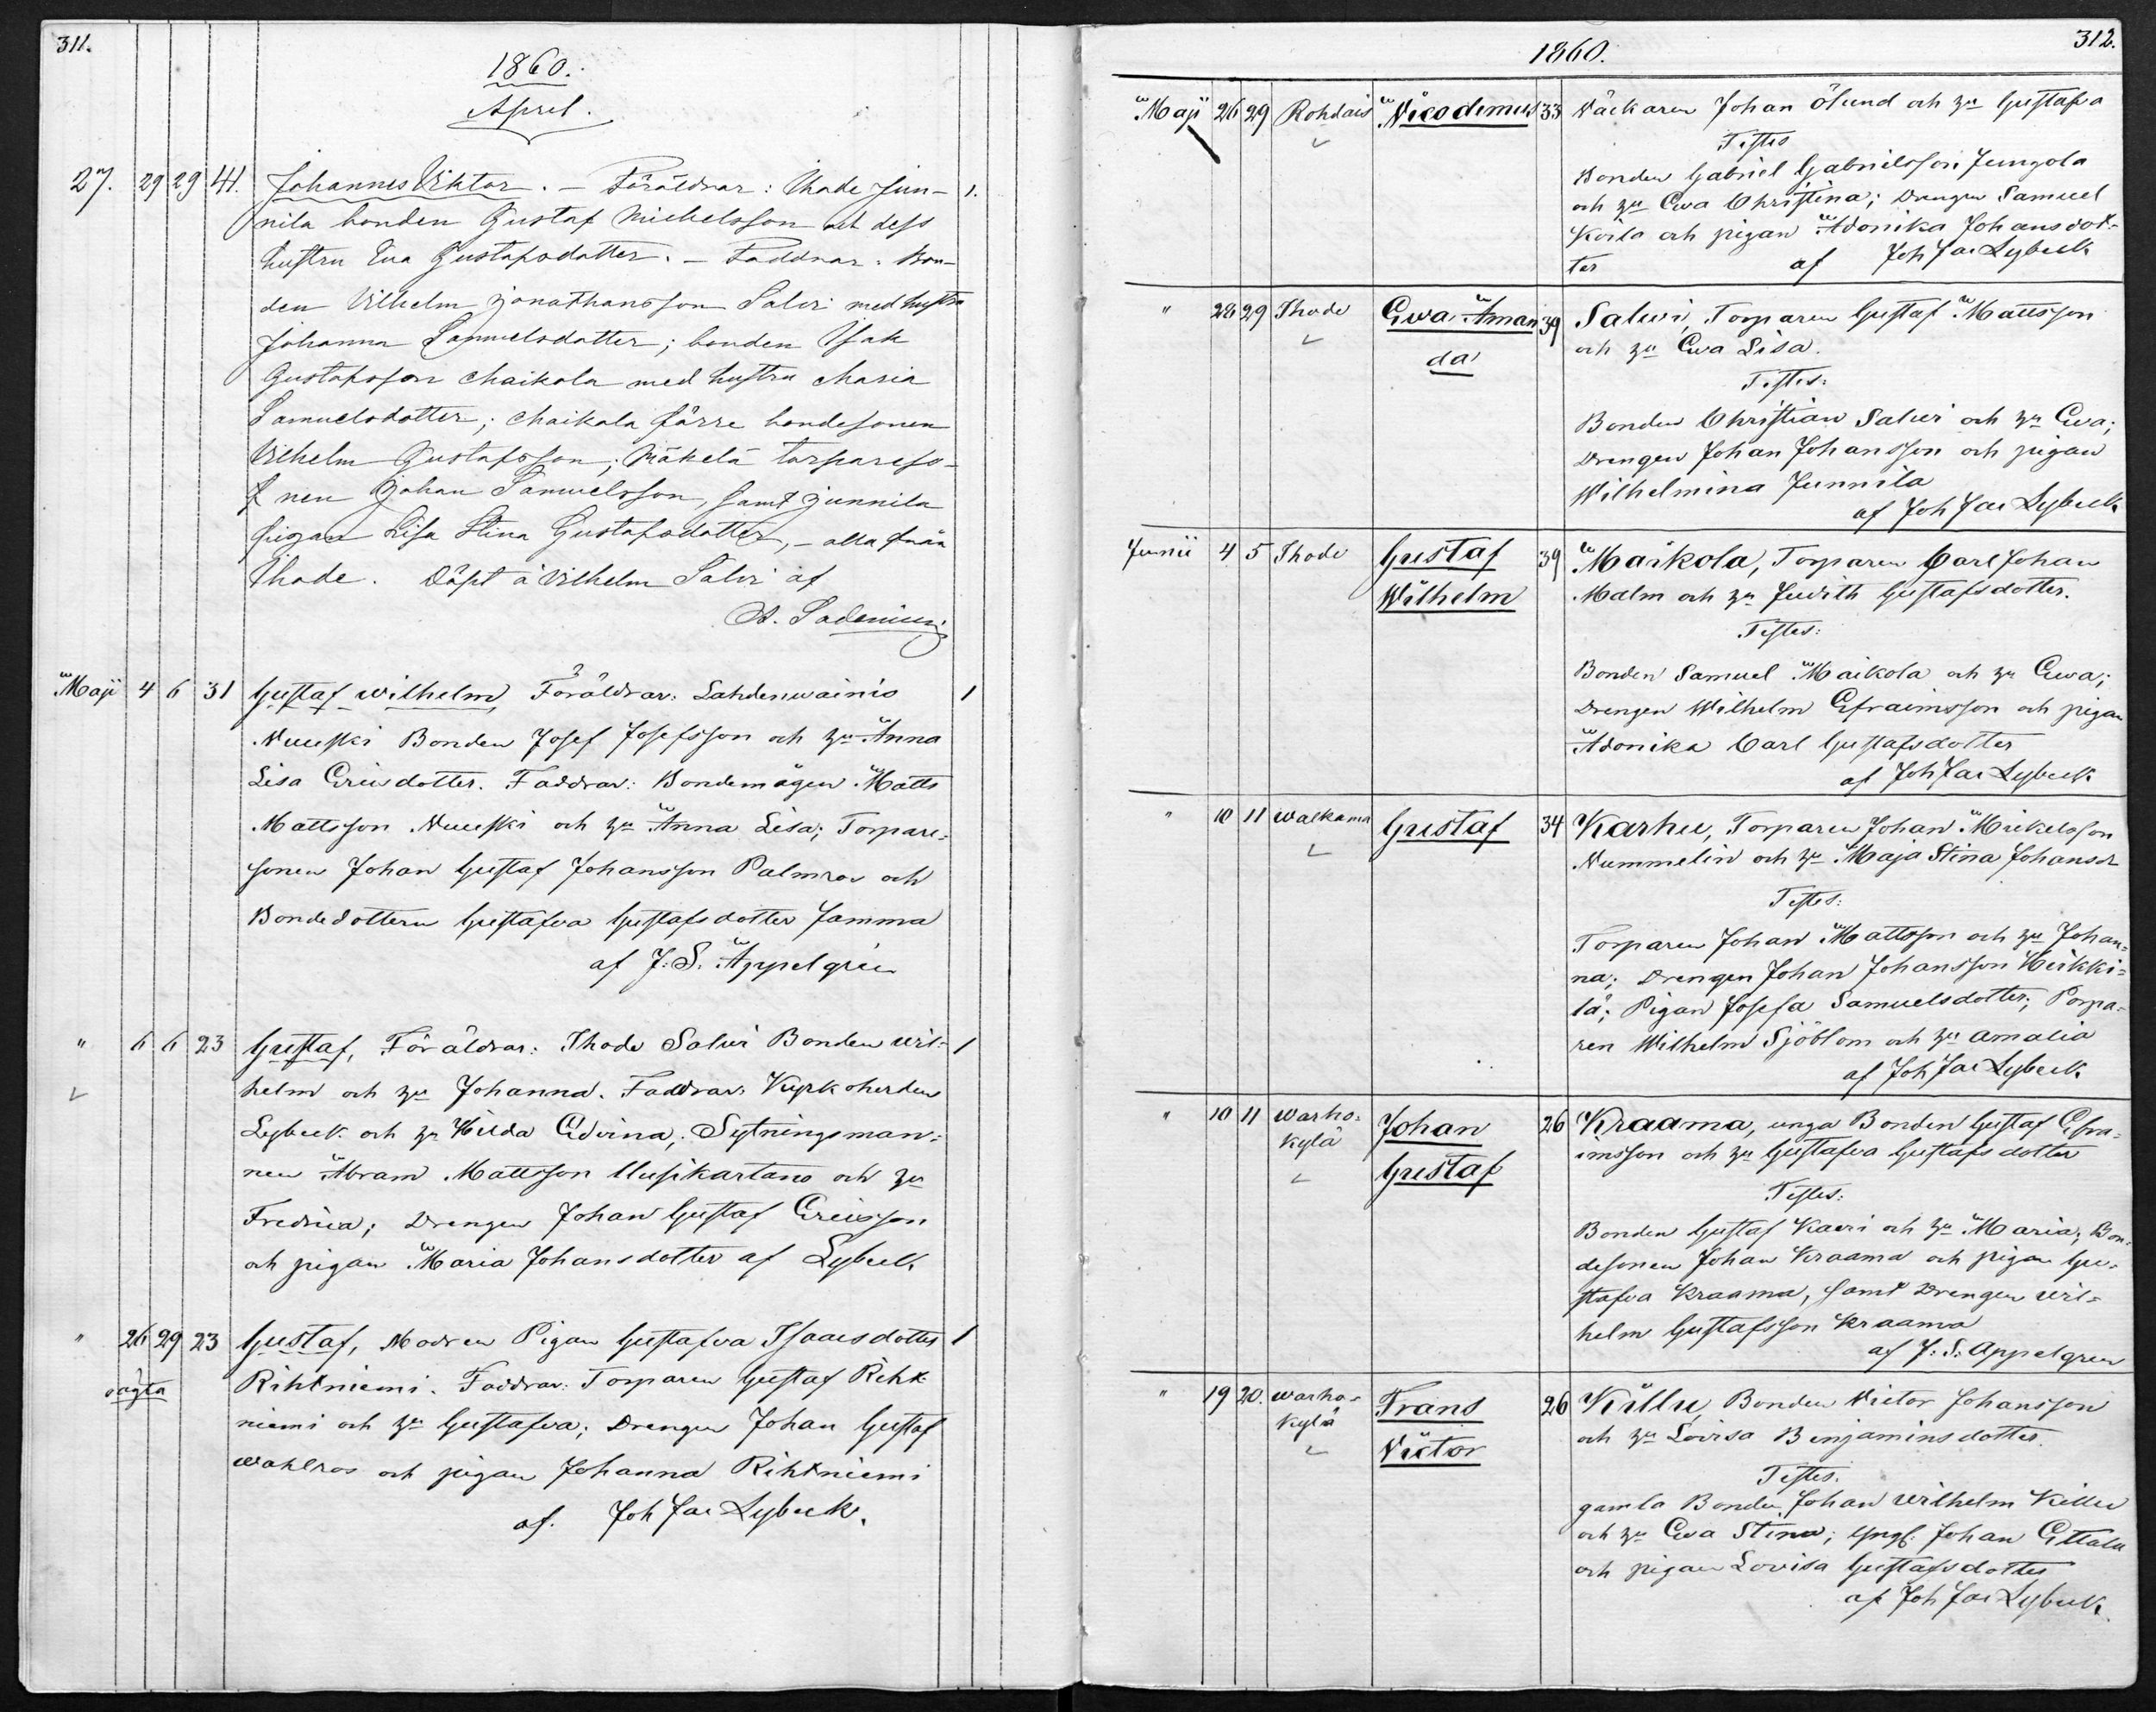 311.
1860.
April.
27. 29 29 41. Johannes Viktor. – Föräldrar: Ihode Jun- 1.
nila bonden Gustaf Michelsson och dess
hustru Eva Gustafsdotter. – Faddrar: Bon-
den Vilhelm Jonathansson Salvi med hustru
Johanna Samuelsdotter; bonden Isak
Gustafsson Maikola med hustru Maria
Samuelsdotter; Maikola färre bondesonen
Vilhelm Gustafsson; Mäkelä torpareso-
nen Johan Samuelsson, samt Junnila
pigan Lisa Stina Gustafsdotter, – alla från
Ihode. Döpt à Vilhelm Salvi af
A. Sadenius
Maji 4 6 31 Gustaf Wilhelm, Föräldrar: Lahdenwainio 1
Nuuski Bonden Josef Josefsson och hu Anna
Lisa Ericsdotter. Faddrar: Bondemågen Matts
Mattsson Nuuski och hu Anna Lisa; Torpare-
sonen Johan Gustaf Johansson Palmros och
Bondedottern Gustafva Gustafsdotter Jamma
af J: S. Appelgrén
" 6 6 23 Gustaf, Föräldrar: Ihode Salvi Bonden Wil- 1
helm och hu Johanna. Faddrar: Kyrkoherden
Lybeck och hu Hilda Edvina; Sytningsman-
nen Abram Mattsson Uusikartano och hu
Fredrica; Drengen Johan Gustaf Ericsson
och pigan Maria Johansdotter af Lybeck
" 26 29 23 Gustaf, Modren Pigan Gustafva Isaacsdotter 1
oägta Rihtniemi. Faddrar: Torparen Gustaf Riht-
niemi och hu Gustafva; Drengen Johan Gustaf
Wahlros och pigan Johanna Rihtniemi
af. Joh Jac Lybeck.
312.
1860.
Maji 26 29 Rohdais Nicodemus 33 Wäckaren Johan Ölund och hu Gustafva
Testes
Bonden Gabriel Gabrielsson Jungola
och hu Ewa Christina; Drengen Samuel
Koila och pigan Adonika Johansdot-
ter af Joh Jac Lybeck
" 28 29 Ihode Ewa Aman 39 Salwi, Torparen Gustaf Mattsson
da och hu Ewa Lisa.
Testes:
Bonden Christian Salwi och hu Ewa;
Drengen Johan Johansson och pigan
Wilhelmina Junnila
af Joh Jac Lybeck
Junii 4 5 Ihode Gustaf 39 Maikola, Torparen Carl Johan
Wilhelm Malm och hu Judith Gustafsdotter.
Testes:
Bonden Samuel Maikola och hu Ewa;
Drengen Wilhelm Efraimsson och pigan
Adonika Carl Gustafsdotter
af Joh Jac Lybeck
" 10 11 Walkama Gustaf 34 Karhu, Torparen Johan Mickelsson
Nummelin och hu Maja Stina Johansdr
Testes:
Torparen Johan Mattsson och hu Johan-
na; Drengen Johan Johansson Heikki-
lä; Pigan Josefa Samuelsdotter; Torpa-
ren Wilhelm Sjöblom och hu Amalia
af Joh Jac Lybeck
" 10 11 Warho- Johan 26 Kraama, unga Bonden Gustaf Efra-
kylä Gustaf imsson och hu Gustafva Gustafsdotter
Testes:
Bonden Gustaf Kaeri och hu Maria; Bon-
desonen Johan Kraama och pigan Gu-
stafva Kraama, samt Drengen Wil-
helm Gustafsson Kraama
af J: S: Appelgren
" 19 20. Warho- Frans 26 Killu, Bonden Victor Johansson
kylä Victor och hu Lovisa Benjaminsdotter.
Testes.
gamla Bonden Johan Wilhelm Killu
och hu Ewa Stina; Yngl: Johan Ettala
och pigan Lovisa Gustafsdotter
af Joh Jac Lybeck.